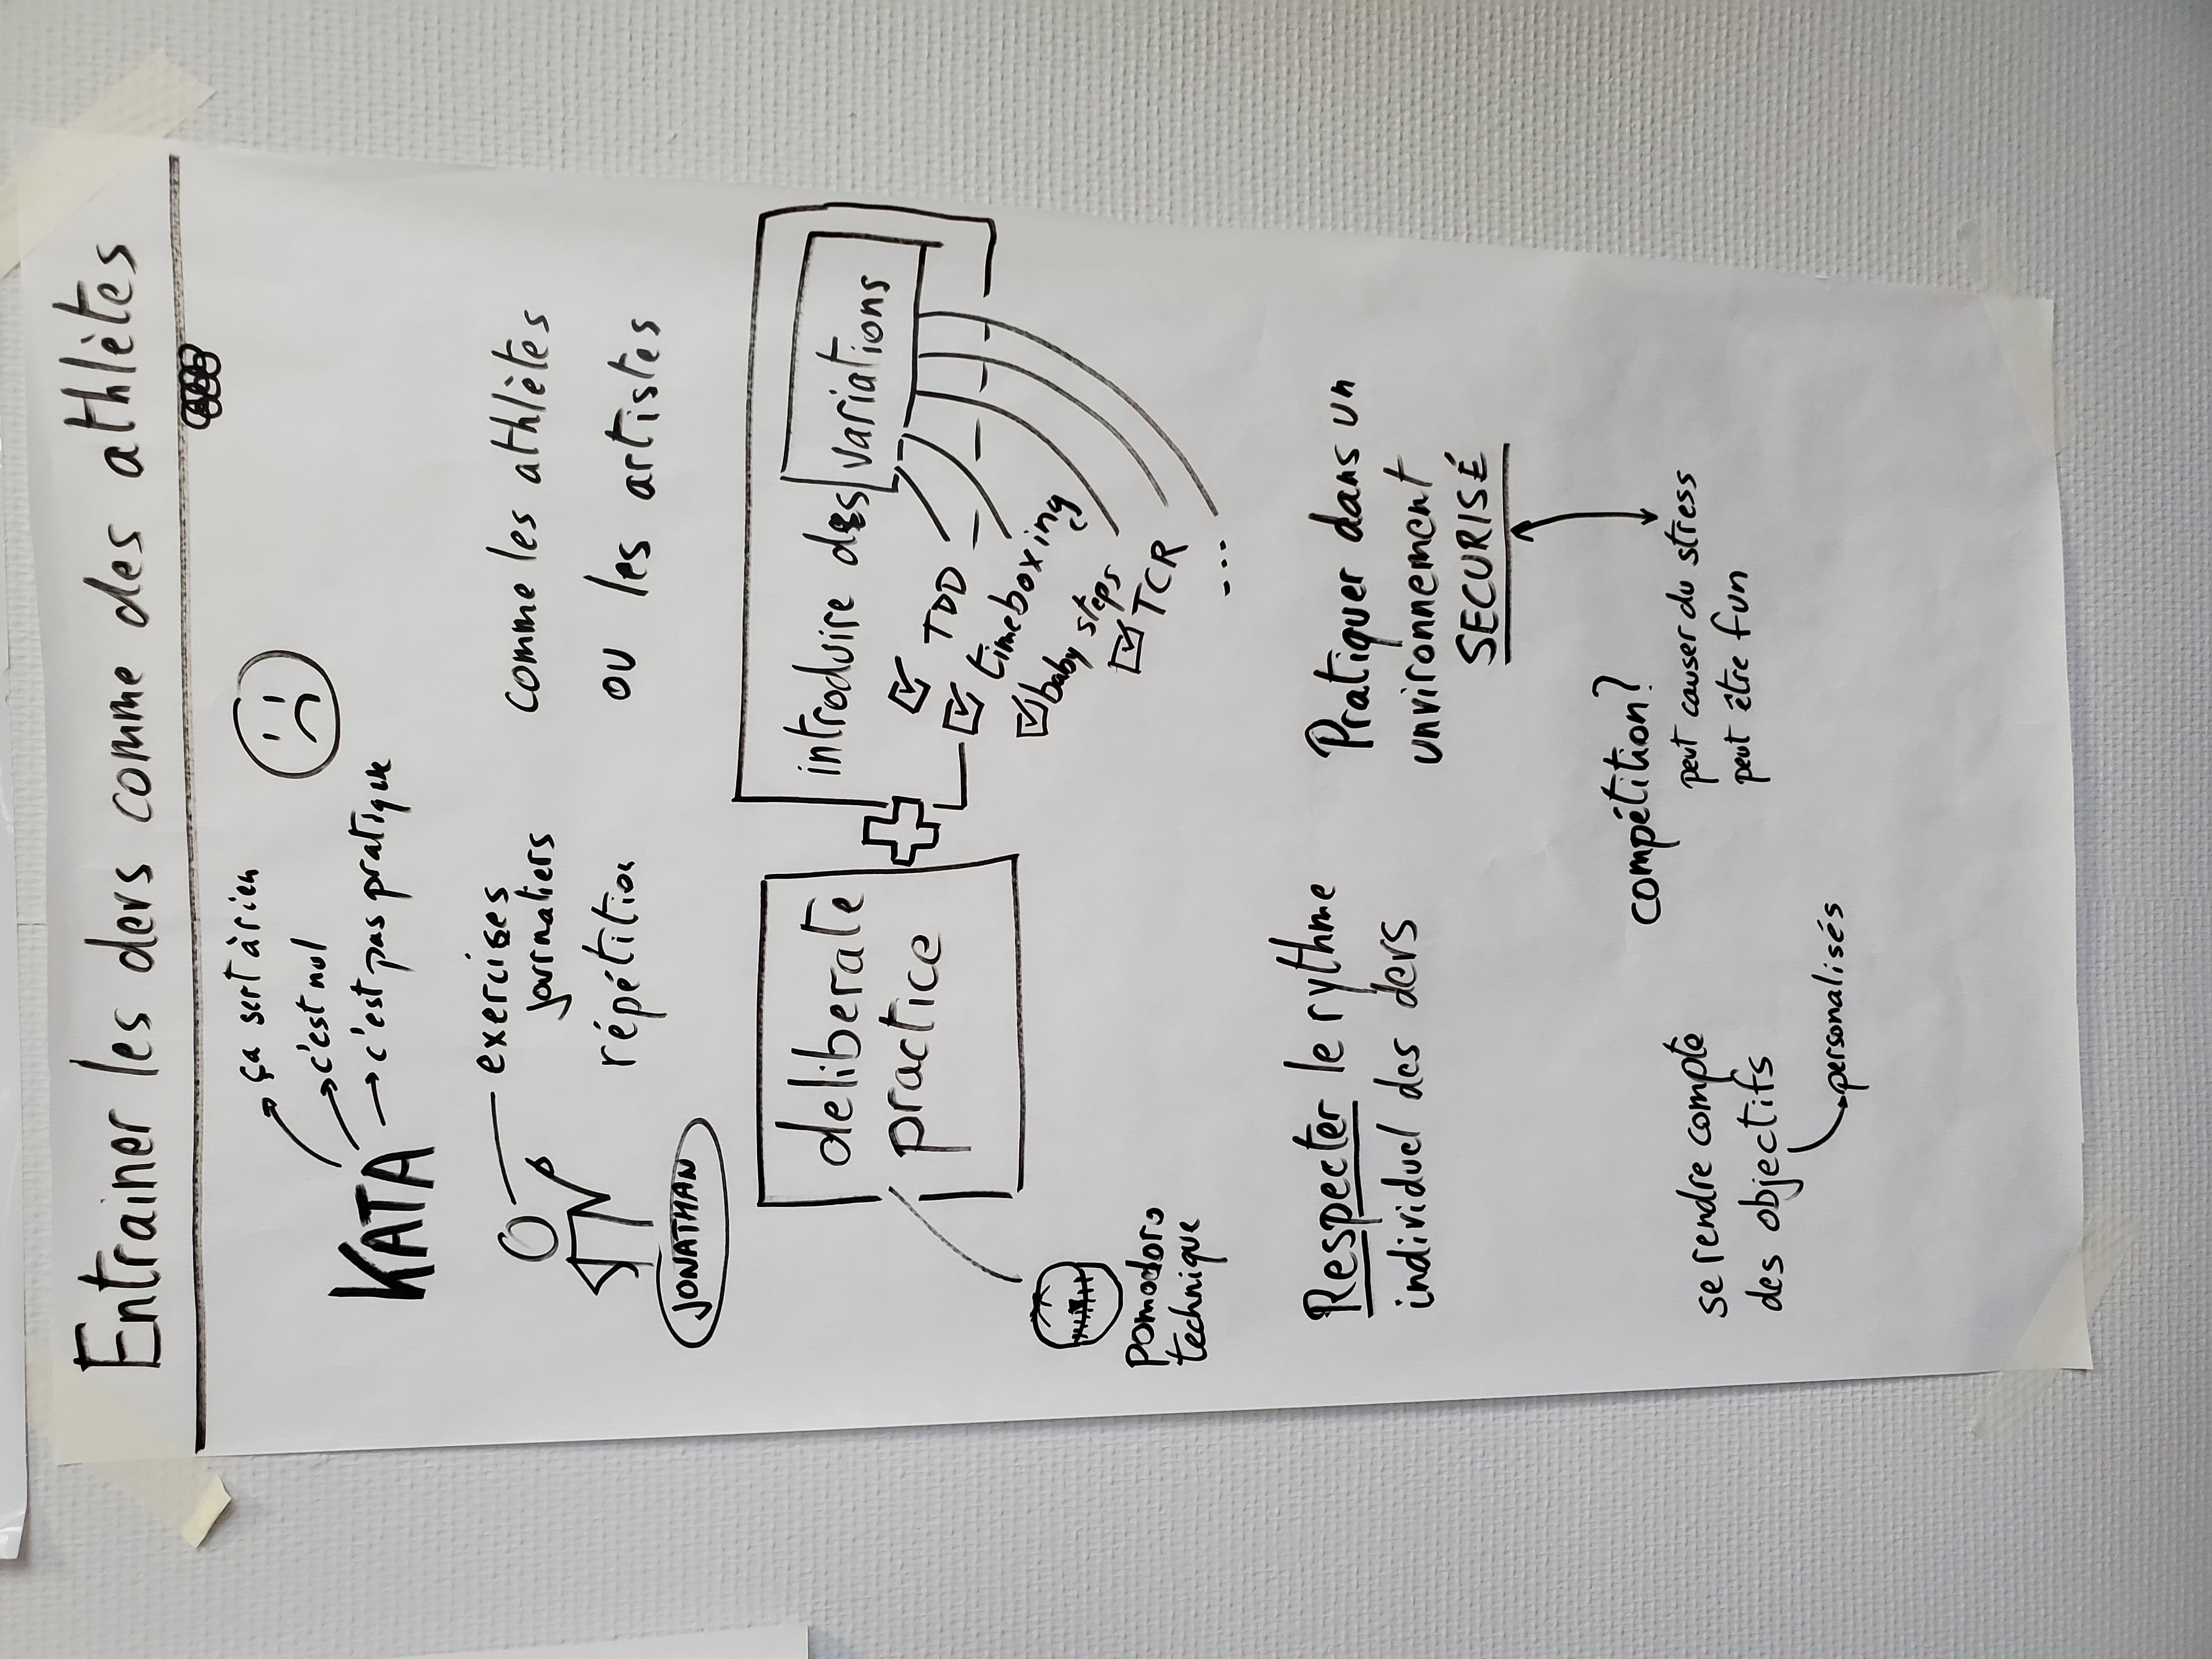 Entrainer les devs comme des athlètes
ça sert à rien
c'est nul
KATA
c'est pas pratique
exercises
journaliers
répétition
comme les athlètes
ou les artistes
JONATHAN
deliberate
practice
introduire des variations
TDD
timeboxing
baby steps
TCR
...
pomodoro
technique
Respecter le rythme
individuel des devs
Pratiquer dans un
unvironnement
SECURISÉ
compétition?
peut causer du stress
peut être fun
se rendre compte
des objectifs
personalisés